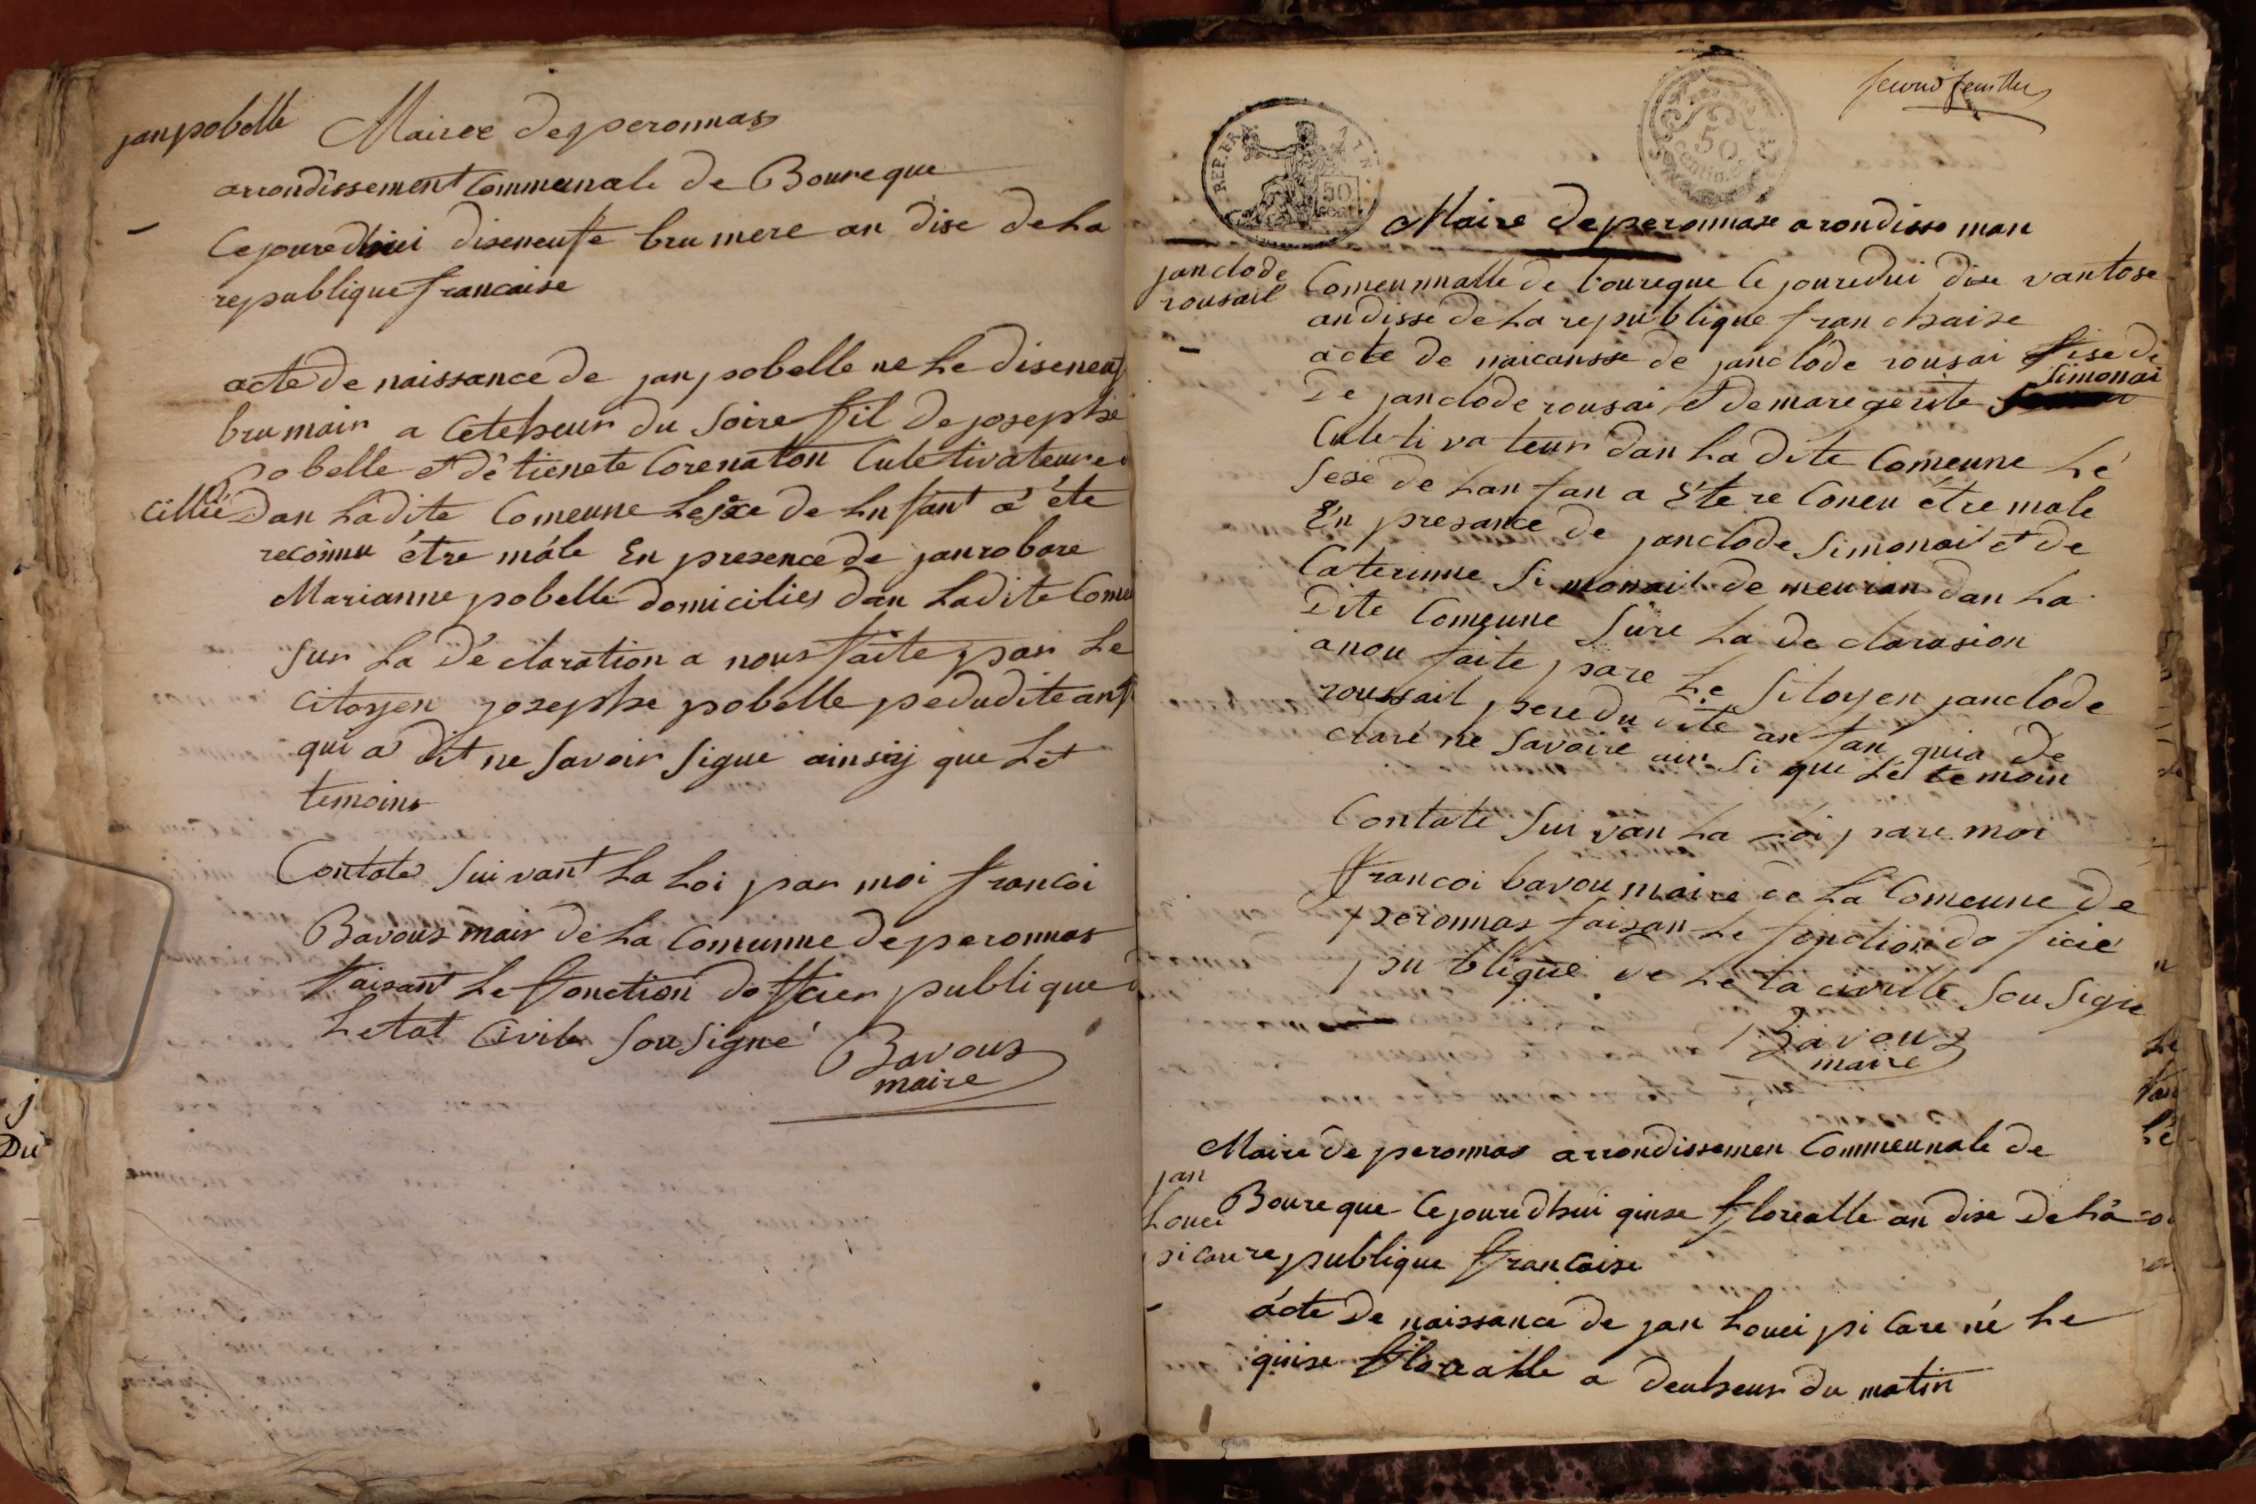 jan pobelle
Mairee de peronnas
arrondissement Communale de Boureque
Ce jouredhui diseneufe brumere an dise de La
republique francaise
acte de naissance de jan pobelle ne Le diseneuf
brumair a Cetcheur du Soire fil de josephe
pobelle et de tienete Corenaton Culetivateure
cillié Dan La dite Comeune Le sexe de Lnfant a été
reconnu étre mále En presence de jan robare
Marianne pobelle domicilies dan La dite Come
Sur La Déclaration a nous faite par Le
Citoyen josephe pobelle pe du dite anf
qui a dit ne Savoir Signe ainsiy que Let
temoins
Contate Suivant La Loi par moi francoi
Bavous mair de La Comunne de peronnas
faisant Le fonction dofficier publique d
Letat Civile Sousigné
Bavous
maire
Second feuillet
REP. FRA.
50
50
centim.
Maire de peronnase arondisseman
janclode
rousail
Comeunnalle de boureque Ce jouredui dise vantose
an disse de La republique franchaise
acte de naicansse de janclode rousai fise de
De janclode rousai et de mare gerite
Simonai
Culetivateur dan La dite Comeune Lé
Sexe de Lanfan a Ete re Coneu étre male
En presance de janclode Simonai et de
Caterinne Simonail de meuran dan La
Dite Comeune Sure La de clarasion
anou faite pare Le Sitoyen janclode
roussail pere du dite an fan quia de
claré ne Savoire ain Si que Lé temoin
Contate Suivan La Loi pare moi
francoi bavou maire de La Comeune de
peronnas faisan Le fonction do ficié
publique de Leta civille Sousigne
Bavous
maire
Maire de peronnas arrondissemen Commeunale de
jan
Louei
picare
Boureque Ce jouredhui quise florealle an dise de La
republique francaise
acte De naissance de jan Louei picare né Le
quise florealle a deuheur du matin